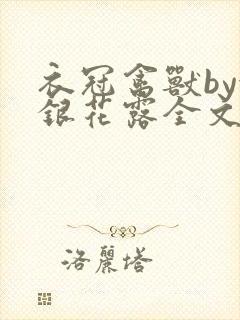 衣冠禽獸by
銀花露全文
洛麗塔